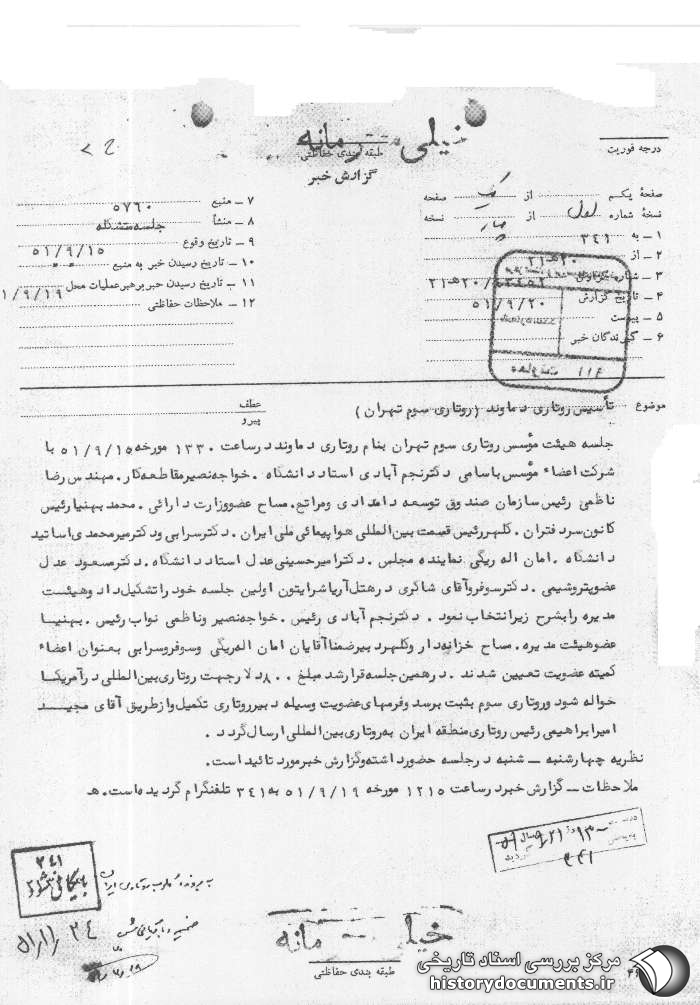 خیلی محرمانه
طبقه بندی حفاظتی
گزارش خبر
درجه فوریت
صفحهٔ یکم از یک صفحه
نسخهٔ شماره اول از چهار نسخه
۱ ـ به ۳۴۱
۲ ـ از ۲۰ هـ ۲۱
۳ ـ شماره گزارش
۴ ـ تاریخ گزارش ۵۱/۹/۲۰
۵ ـ پیوست
۶ ـ گیرندگان خبر
۷ ـ منبع ۵۷۶۰
۸ ـ منشأ جلسه متشکله
۹ ـ تاریخ وقوع ۵۱/۹/۱۵
۱۰ ـ تاریخ رسیدن خبر به منبع
۱۱ ـ تاریخ رسیدن خبر برهبر عملیات محل ۱/۹/۱۹
۱۲ ـ ملاحظات حفاظتی
موضوع تأسیس روتاری دماوند (روتاری سوم تهران)
عطف
پیرو
جلسه هیئت مؤسس روتاری سوم تهران بنام روتاری دماوند در ساعت ۱۳۳۰ مورخه ۵۱/۹/۱۵ با
شرکت اعضاء مؤسس باسامی دکتر نجم آبادی استاد دانشگاه . خواجه نصیر مقاطعه کار. مهندس رضا
ناظمی رئیس سازمان صندوق توسعه دامداری و مراتع. مساح عضو وزارت دارائی . محمد بهنیا رئیس
کانون سردفتران . کلهر رئیس قسمت بین المللی هواپیمائی ملی ایران . دکتر سرابی و دکتر میرمحمدی اساتید
دانشگاه . امان اله ریگی نماینده مجلس . دکتر امیرحسینی عدل استاد دانشگاه. دکتر مسعود عدل
عضو پتروشیمی . دکتر سوفر و آقای شاکری در هتل آریا شرایتون اولین جلسه خود را تشکیل داد و هیئت
مدیره را بشرح زیر انتخاب نمود . دکتر نجم آبادی رئیس . خواجه نصیر و ناظمی نواب رئیس . بهنیا
عضو هیئت مدیره. مساح خزانه دار و کلهر دبیر ضمنا آقایان امان اله ریگی و سوفر و سرابی بعنوان اعضاء
کمیته عضویت تعیین شدند . در همین جلسه قرار شد مبلغ ۸۰۰ دلار جهت روتاری بین المللی در آمریکا
حواله شود و روتاری سوم بثبت برسد و فرمهای عضویت وسیله دبیر روتاری تکمیل و از طریق آقای مجید
امیر ابراهیمی رئیس روتاری منطقه ایران به روتاری بین المللی ارسال گردد .
نظریه چهارشنبه ـ شنبه در جلسه حضور داشته و گزارش خبر مورد تائید است.
ملاحظات ـ گزارش خبر در ساعت ۱۲۱۵ مورخه ۵۱/۹/۱۹ به ۳۴۱ تلفنگرام گردیده است. هـ
۳۴۱
بایگانی شود
۳۴۱
خیلی محرمانه
طبقه بندی حفاظتی
مرکز بررسی اسناد تاریخی
historydocuments.ir